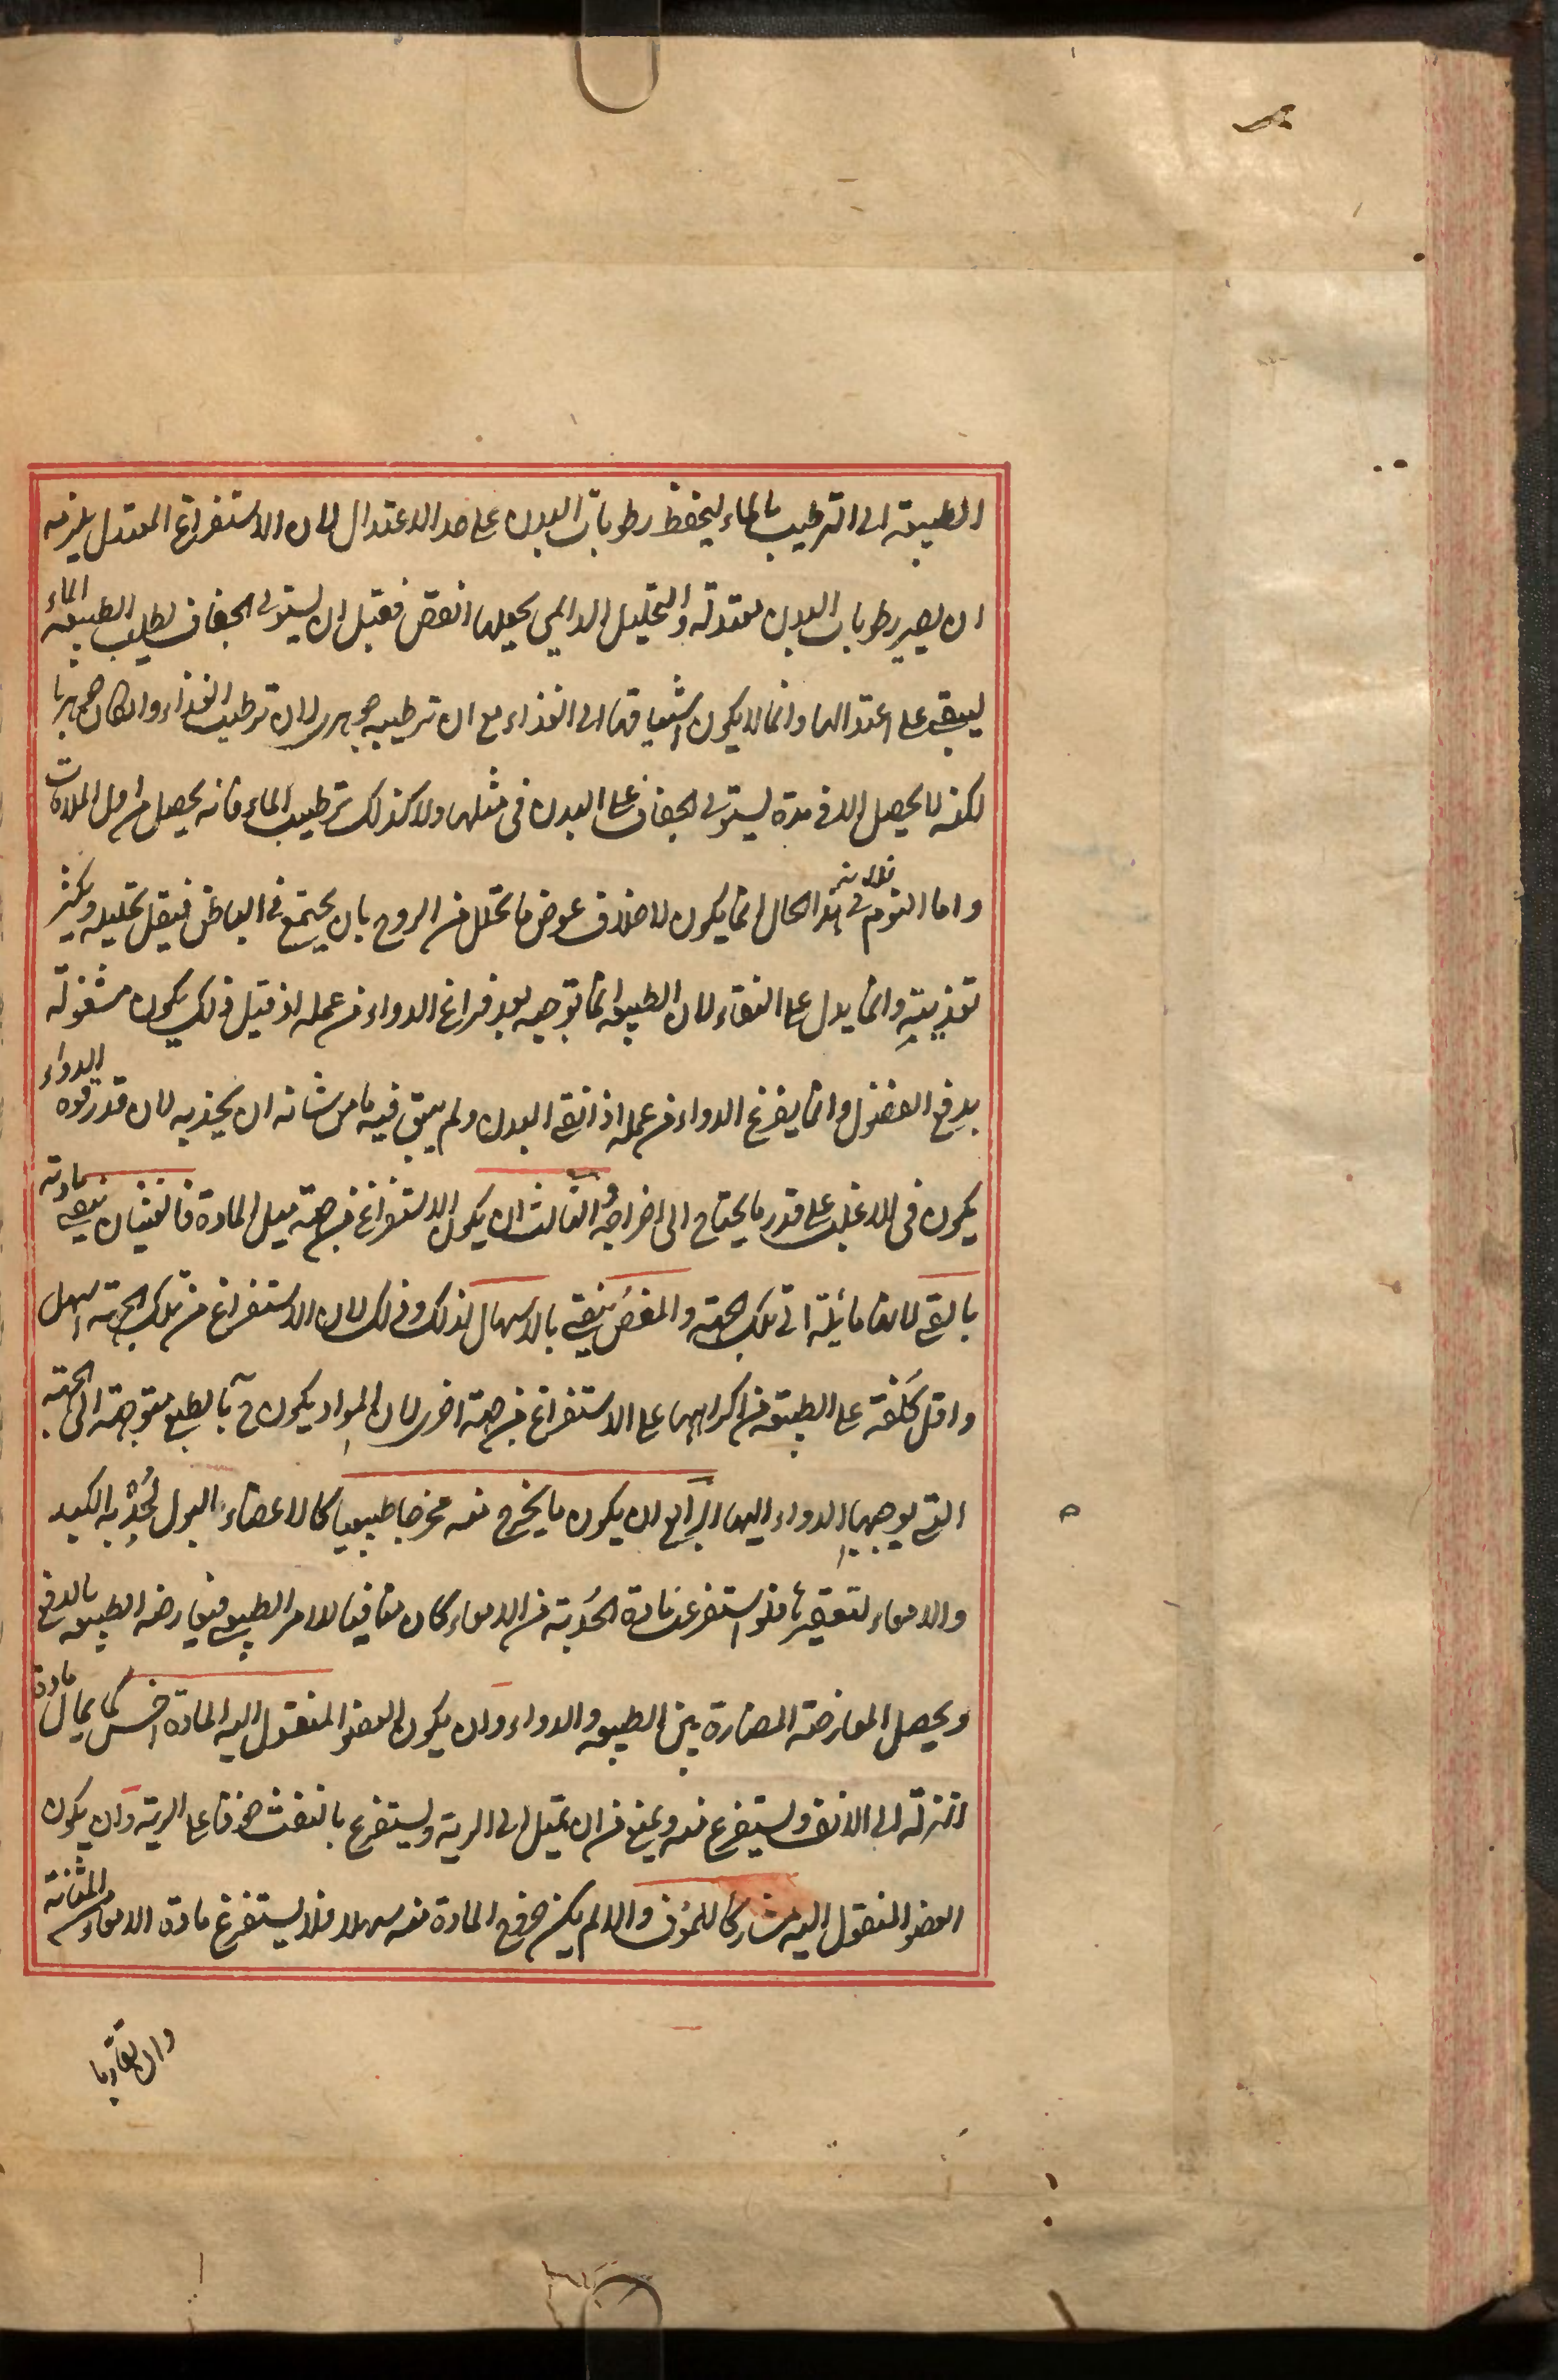 الطبيعة الى الترطيب بالماء ليحفظ رطوبات البدن على حد الاعتدال لان الاستفراغ المعتدل يلزمه
ان يصير رطوبات البدن معتدلة والتحليل الدايمي يجعلها انقص فقبل ان يستولى الجفاف يطلب الطبيعة الماء
ليبقى على اعتدالها وانما لا يكون اشتياقها الى الغذاء مع ان ترطيبه جوهرى لان ترطيب الغذاء وان كان جوهريا
لكنه لا يحصل الا فى مدة يستولى الجفاف على البدن فى مثلها ولا كذلك ترطيب الماء فانه يحصل من اول الملاقات
واما النوم فى هذا الحال فلانه انما يكون لاخلاف عوض ما تحلل من الروح بان يجتمع فى الباطن فيقل تحليله ويكثر
تغذيته وانما يدل على النقاء لان الطبيعة انما توجيه بعد فراغ الدواء من عمله اذ قبل ذلك يكون مشغولة
بدفع الفضول وانما يفرغ الدواء من عمله اذا نقى البدن ولم يبق فيه ما من شانه ان يجذبه لان قدر قوة الدواء
يكون فى الاغلب على قدر ما يحتاج الى اخراجه والثالث ان يكون الاستفراغ من جهة ميل المادة فالغثيان ينقى مادته
بالقئ لانها مائلة الى تلك الجهة والمغص ينقى بالاسهال لذلك وذلك لان الاستفراغ من تلك الجهة اسهل
واقل كلفة على الطبيعة من اكراهها على الاستفراغ من جهة اخرى لان المواد يكون ح بالطبع متوجهة الى الجهة
التى يوجهها الدواء اليها الرابع ان يكون ما يخرج منه مخرجا طبيعيا كالاعضاء البول لحدبة الكبد
والامعاء لتقعيرها فلو استفرغت مادة الحدبة من الامعاء كان منافيا للامر الطبيعى فيعارضه الطبيعة بالدفع
ويحصل المعارضة المضارة بين الطبيعة والدواء وان يكون العضو المنقول اليه المادة اخس كما يمال مادة
النزلة الى الانف ويستفرغ منه ويمنع من ان تميل الى الرية ويستفرغ بالنفث خوفا على الرية وان يكون
العضو المنقول اليه مشاركا للمؤف والا لم يكن خروج المادة منه سهلا فلا يستفرغ مادة الامعاء من المثانة
وان تقاربا